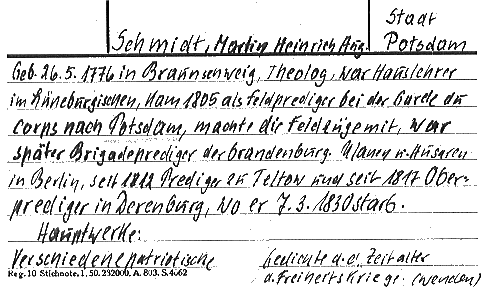 Stadt
Schmidt, Martin Heinrich Aug. Potsdam
Geb. 26.5.1776 in Braunschweig, Theolog, war Hauslehrer
im Lüneburgischen, kam 1805 als Feldprediger bei der Garde du
corps nach Potsdam, machte die Feldzüge mit, war
später Brigadeprediger der brandenburg. Ulanen u. Husaren
in Berlin, seit 1812 Prediger zu Teltow und seit 1817 Ober-
prediger in Derenburg, wo er 7.3.1830 starb.
Hauptwerke:
Verschiedene patriotische Gedichte a.d. Zeitalter
d. Freiheitskriege. (wenden)
Reg. 10 Stichnote, 1, 50. 232000. A. 803. S. 4662